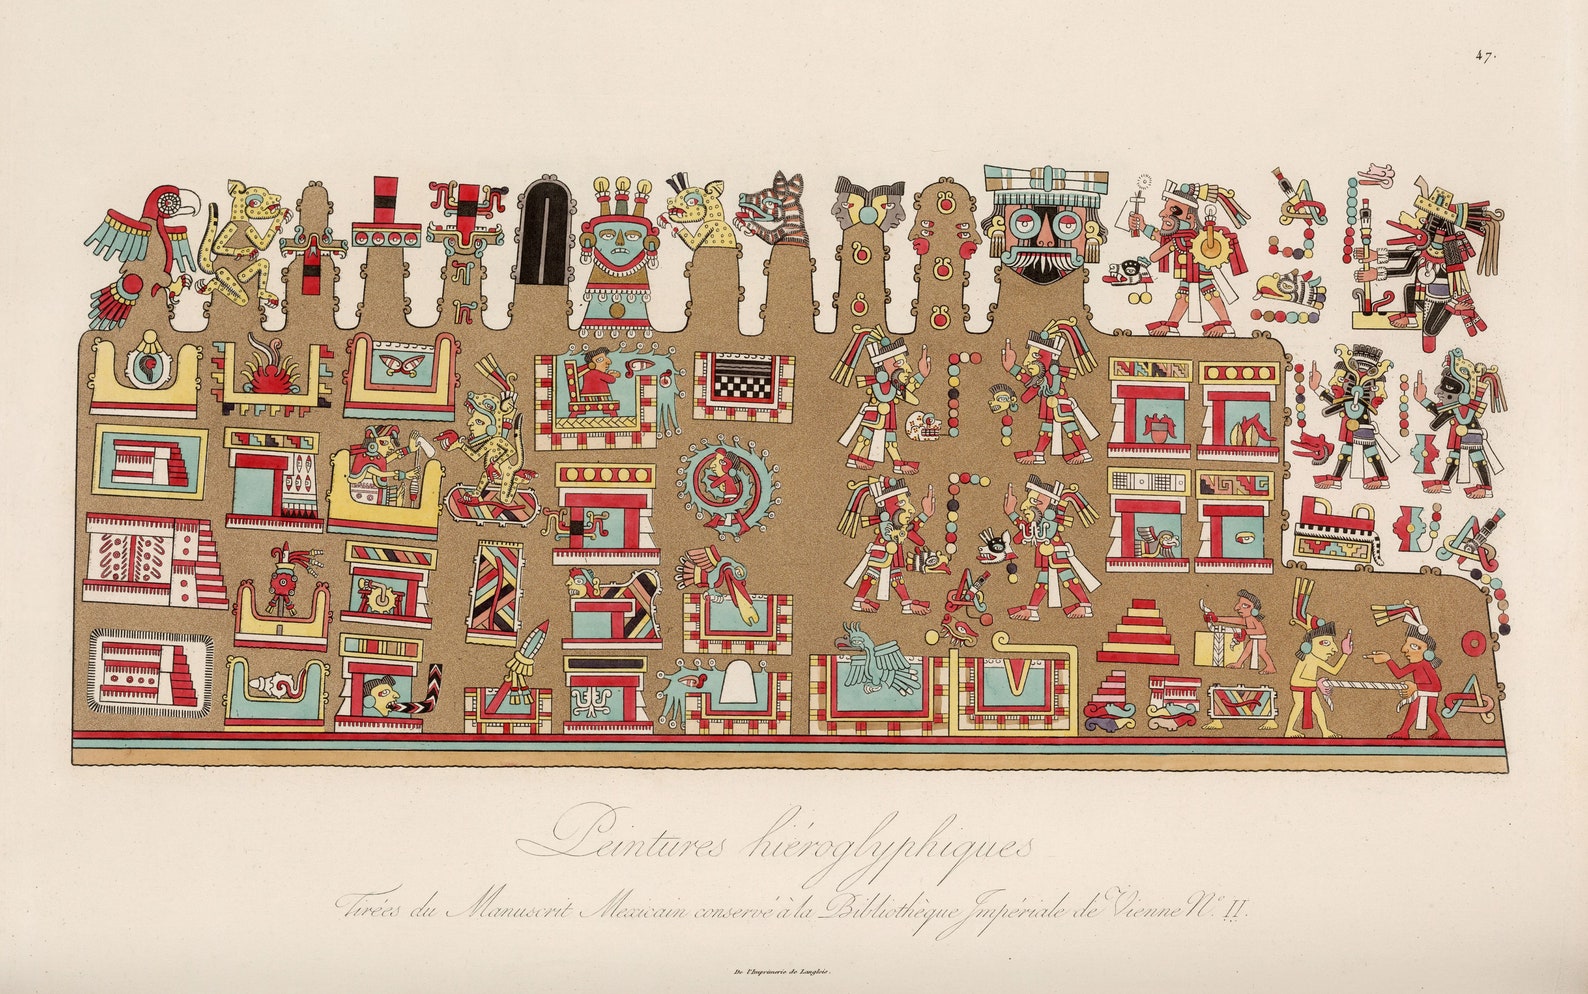 47.
Peintures hiéroglyphiques
Tirées du Manuscrit Mexicain conservé à la Bibliothèque Impériale de Vienne N.º II.
De l'Imprimerie de Langlois.